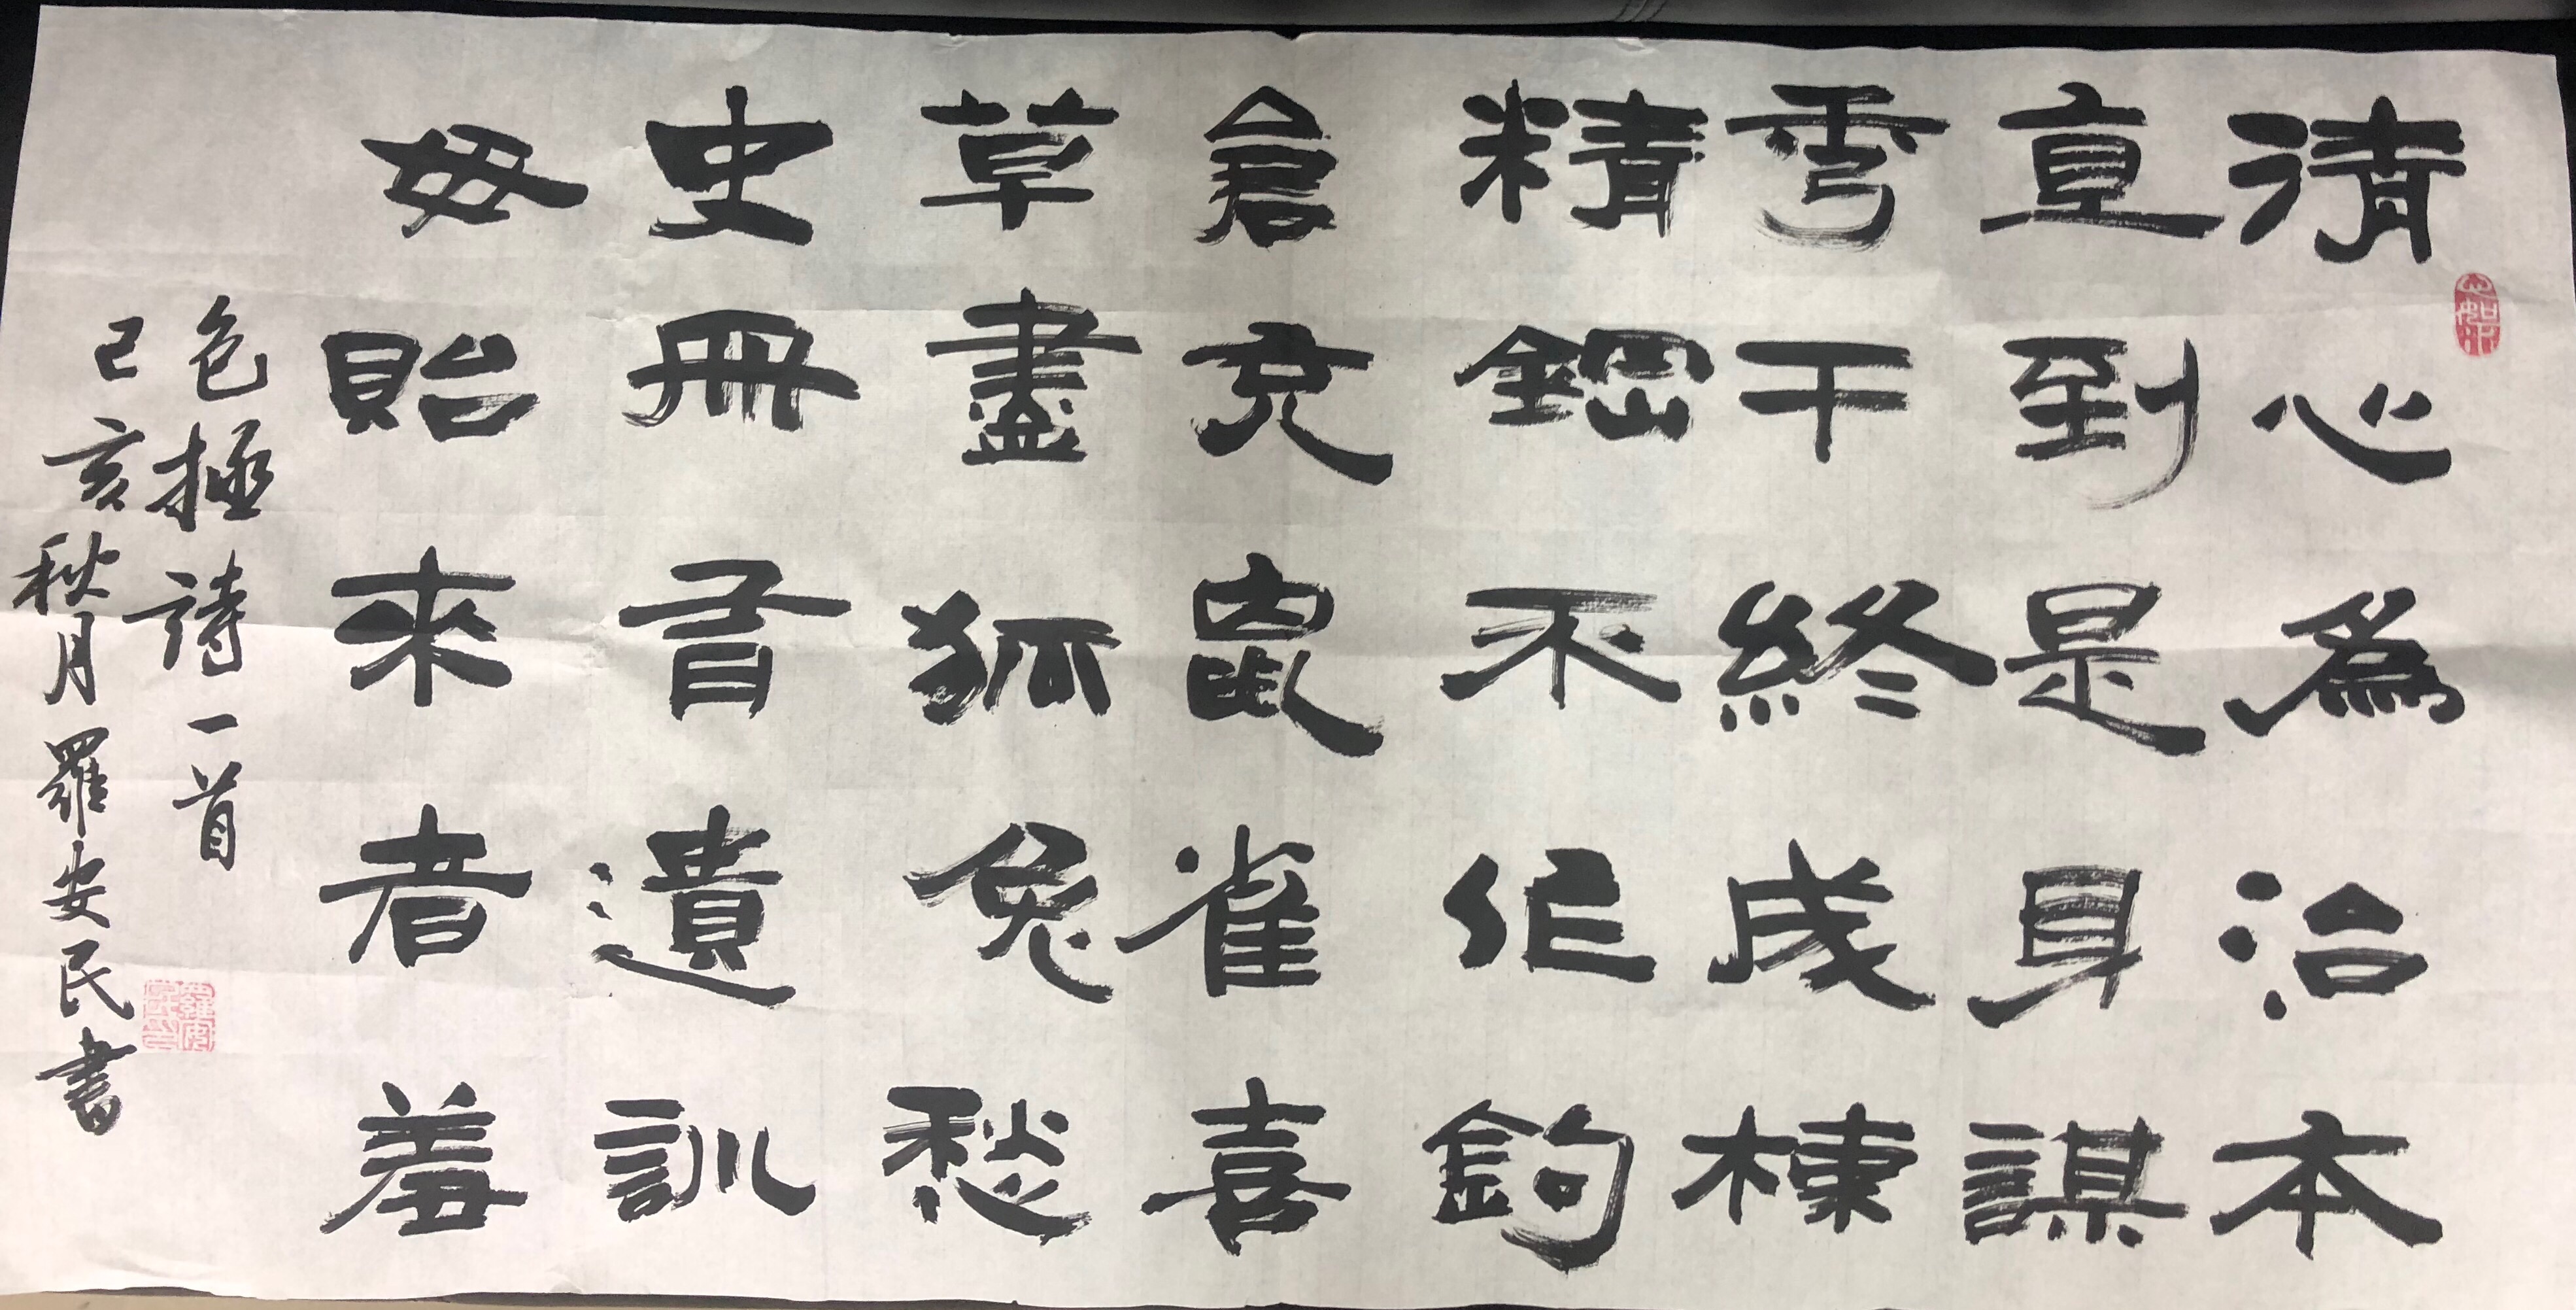 清心為治本
直到是身謀
秀干終成棟
精鋼不作鉤
倉充鼠雀喜
草盡狐兔愁
史冊有遺訓
毋貽來者羞
包拯詩一首
己亥秋月羅安民書